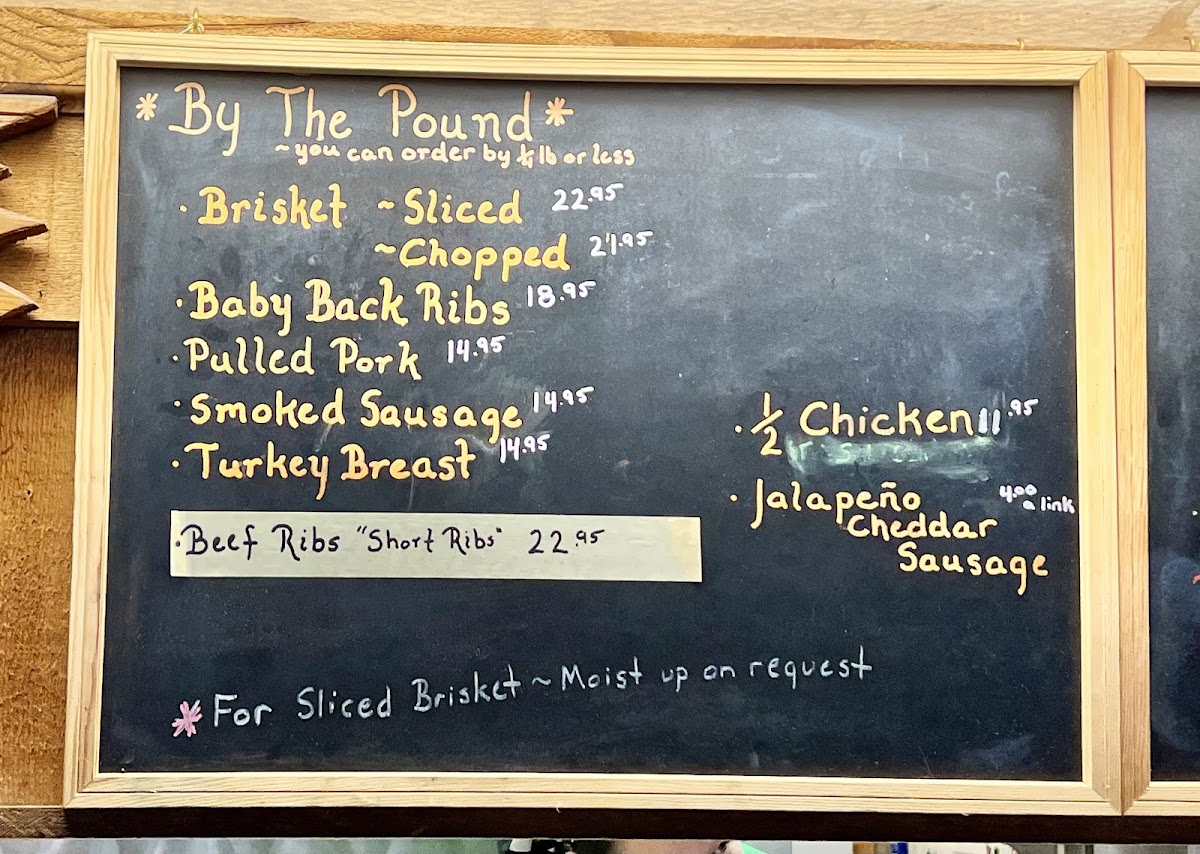 *By The Pound*
~you can order by ¼ lb or less
· Brisket ~Sliced 22.95
~Chopped 21.95
· Baby Back Ribs 18.95
· Pulled Pork 14.95
· Smoked Sausage 14.95
· Turkey Breast 14.95
· Beef Ribs "Short Ribs" 22.95
· ½ Chicken 11.95
· Jalapeño 4.00 a link
Cheddar
Sausage
* For Sliced Brisket ~ Moist up on request